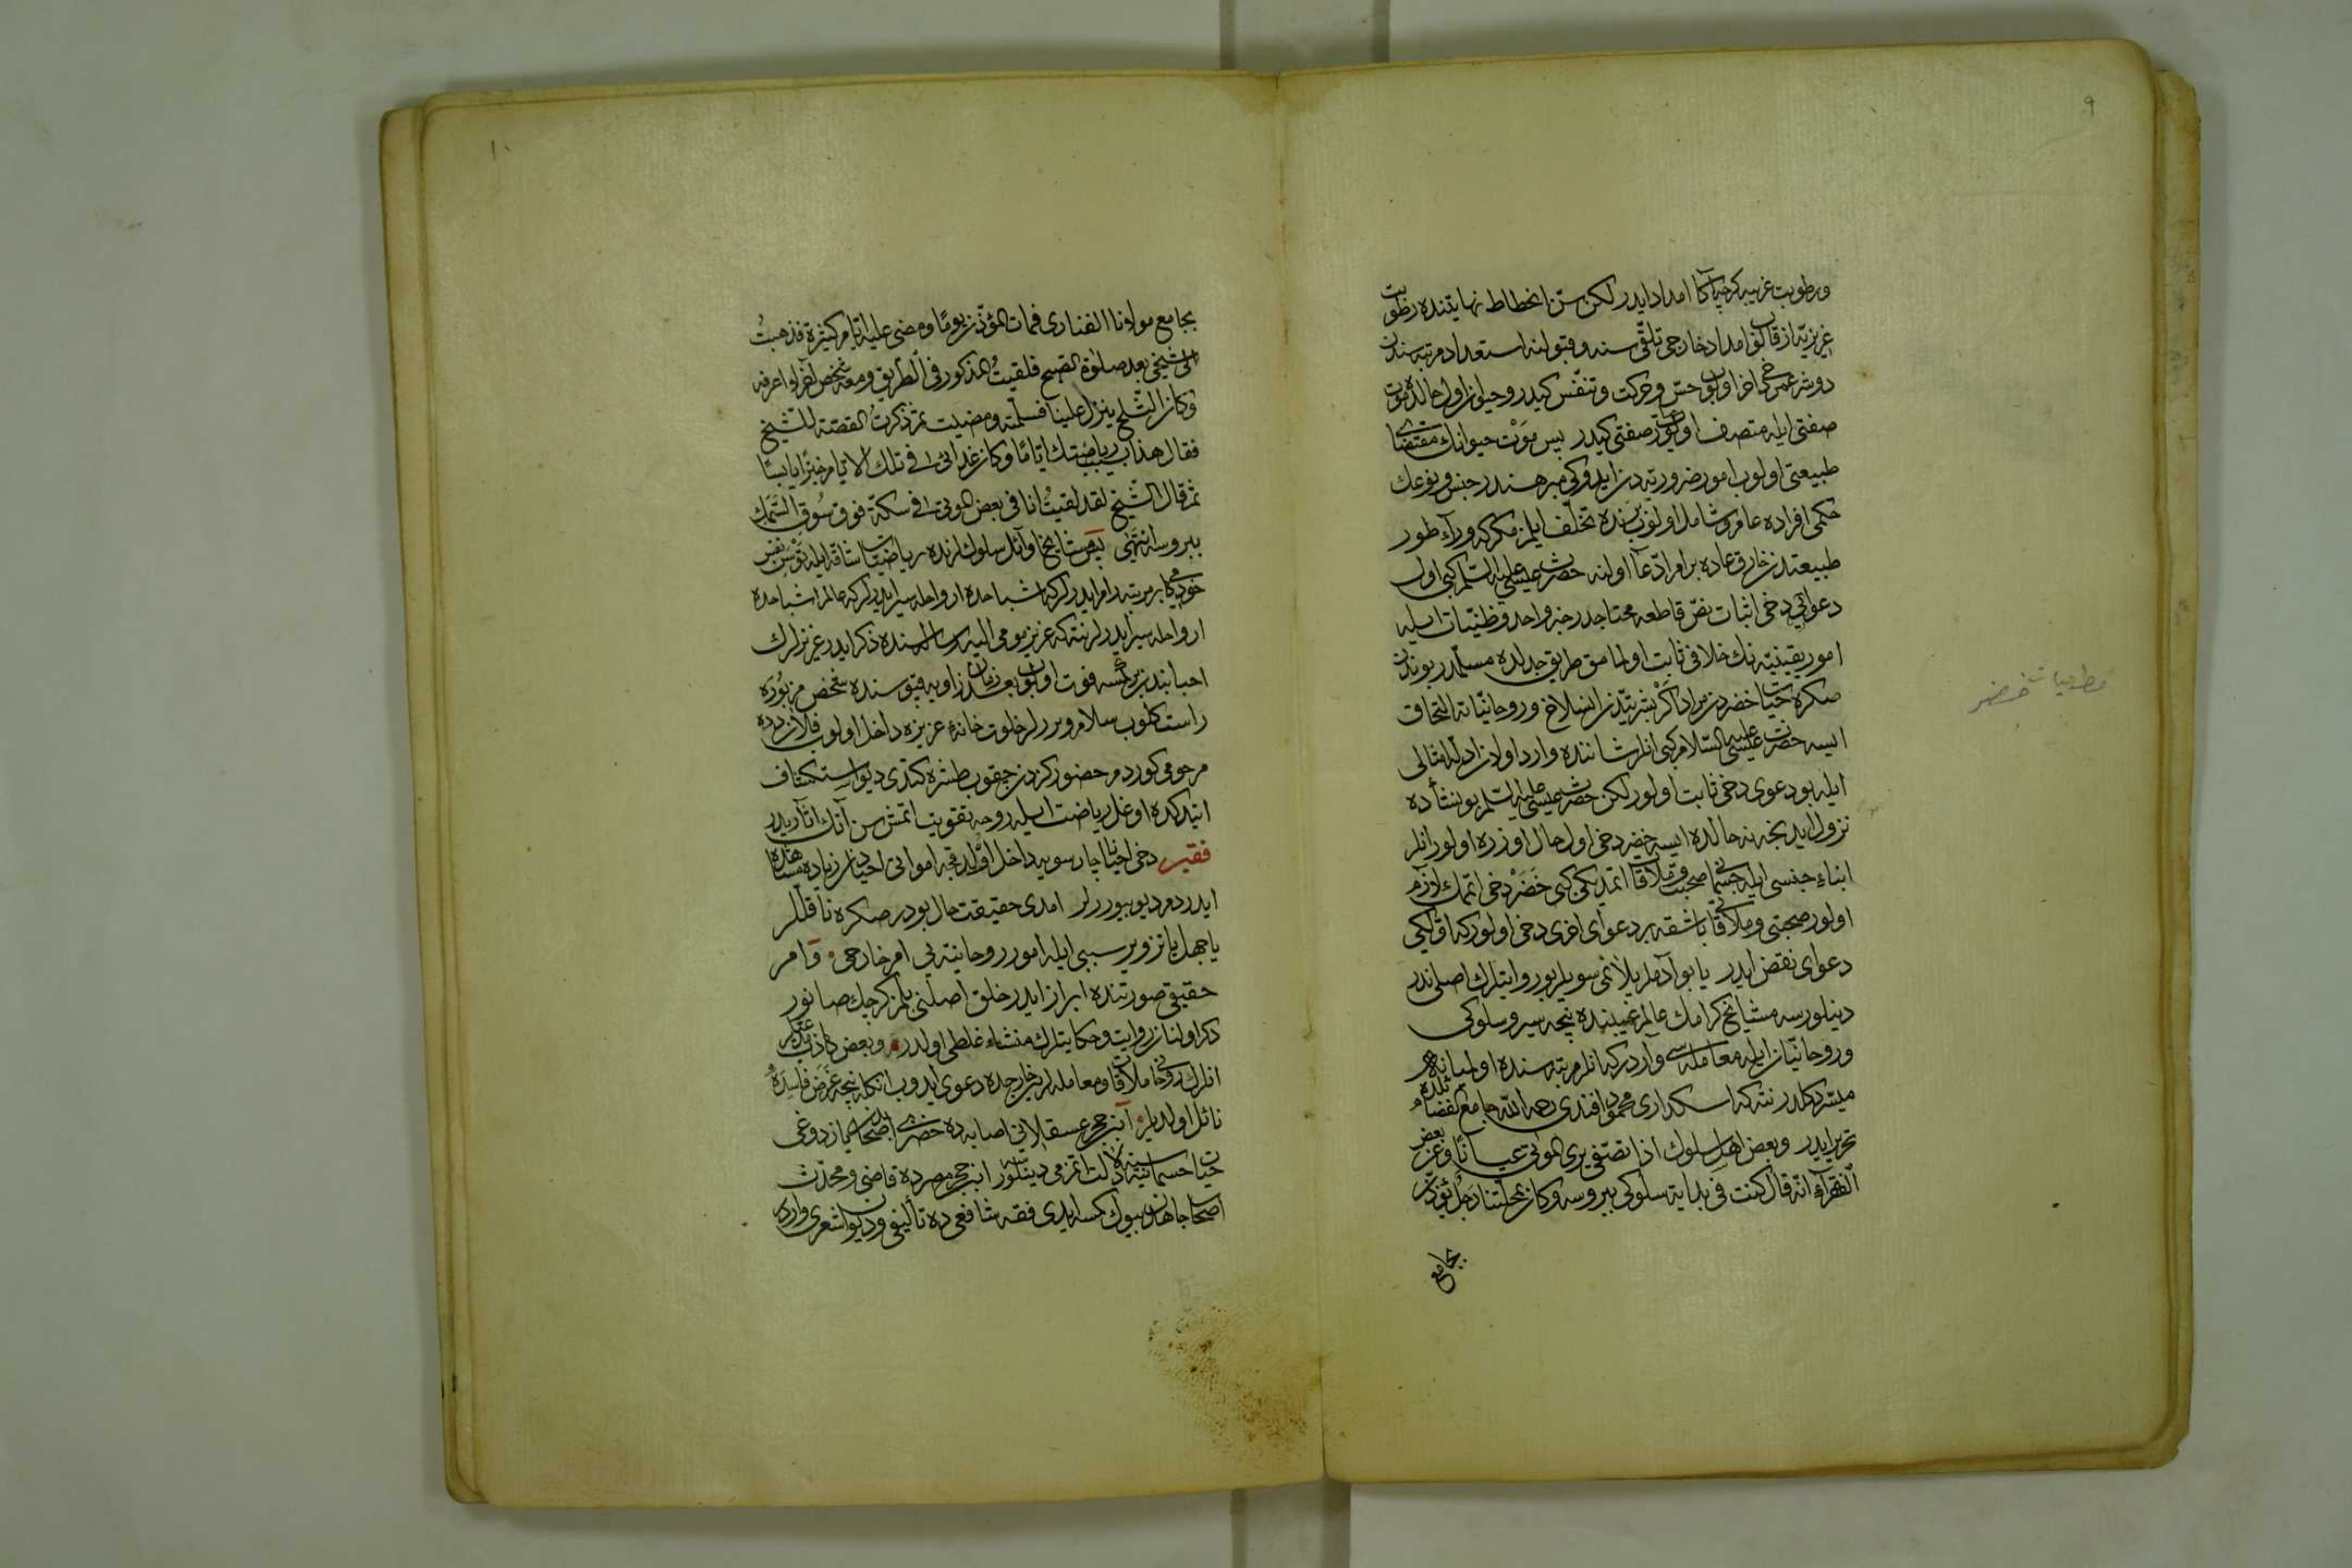 ۹
ورطوبت غريبه كرچه اكا امداد ايدر لكن سنّ انحطاط نهايتنده رطوبت
غريزيّه ازقالوب امداد خارجى تلقّى سنه و قبولنه استعداد مرتبه سندن
دوشر عمر دخى اخر اولوب حسّ و حركت و تنفّس كيدر و حيوان اول حالده موت
صفتى ايله متصف اولور صفتى كيدر پس مَوت حيوانك مقتضاى
طبيعتى اولوب امور ضروريه دن ايدوكى مبرهندر جنس و نوعك
حكمى افراده عام و شامل اولوب برنده تخلّف ايلمز مكركه وراء طور
طبيعتدن خارق عاده بر امر ادّعا اولنه حضرت عيسى عليه السلم كبى اول
دعوانك دخى اثباتى نصّ قاطعه محتاجدر خبر واحد و ظنيّات ايله
امور يقينيّه نك خلافى ثابت اولمامق طريق جدلده مسلّمدر بوندن
صكره حيات خضردن مراد اكر بشريّتدن انسلاخ و روحانيّاته التحاق
ايسه حضرت عيسى عليه السلام كبى انلر شاننده وارد اولان ادلّه امثالى
ايله بو دعوى دخى ثابت اولور لكن حضرت عيسى عليه السلم بو نشأده
نزول ايدنجه نه حالده ايسه خضر دخى اول حال اوزره اولور انلر
ابناء جنسى ايله جسمانى صحبت و ملاقات اتمديكى كبى خَضَرْ دخى اتمك لازم
اولور صحبتى و ملاقاتى باشقه بر دعواى اخرى دخى اولور كه اوّلكى
دعواى نقض ايدر يا بو آدملر يلانمى سويلر بو روايتلرك اصلى ندر
دينلورسه مشايخ كرامك عالم غيبنده نيجه سير و سلوكى
و روحانيّات ايله معامله سى واردر كه انلر مرتبه سنده اوليانه
ميسّر دكلدر نته كه اسكدارى محمود افندى رحمه الله جامع الفضائلده
تحرير ايدر و بعض اهل سلوك اذا تصفّى يرى الموتى عيانًا و عن بعض
الفقراء انّه قال كنت فى بداية سلوكى ببروسه و كان بمحلّتنا رجلٌ يؤذّن
بجامع
خضر
۱۰
بجامع مولانا الفنارى فمات المؤذن يومًا و مضى عليه ايّام كثيرة فذهبتُ
الى شيخى بعد صلوة الصبح فلقيتُ المذكور فى الطريق و معه شخص آخر لا اعرفه
و كان الثلج ينزل علينا فسلّمته و مضيت ثم ذكرت القصّة للشيخ
فقال هذا بسبب رياضتك ايّامًا و كان غدائى فى تلك الايام خبزًا يابسًا
ثم قال الشيخ لقد لقيتُ انا فى بعض الموتى فى سكّة فوق سُوق السّمك
ببروسا انتهى پس مشايخ اوائل سلوكلرنده رياضات شاقّه ايله توسن نفس
خودكامى بر مرتبه رام ايدرلر كه اشباحده ارواحله سير ايدرلر كه عالم اشباحده
ارواحله سير ايدرلر نته كه عزيز مومى اليه رساله سنده ذكر ايدر عزيزلرك
احبابندن بر كمسه فوت اولوب بعد زمان زاويه قپوسنده شخص مزبوره
راست كلوب سلام ويررلر خلوت خانۀ عزيزه داخل اولوب فلان دده
مرحومى كوردم حضوركزدن چقوب طشره كتدى ديو استكشاف
اتدكده اوغل رياضت ايله روحه تقويت اتمش سن آنك اثاريدر
فقير دخى احيانا چارسويه داخل اولدقجه امواتى احيادن زياده مشاهده
ايدردم ديو بيوررلر امدى حقيقت حال بودر صكره ناقللر
يا جهل يا تزوير سببى ايله امور روحانيّه يى امر خارجى و امر
حقيقى صورتنده ابراز ايدر خلق اصلنى بلمز كرچك صانور
ذكر اولنان روايت و حكايتلرك منشاء غلطى اولدر و بعض كاذب
انلرك روحانى ملاقات و معامله لرين خارجده دعوى ايدوب انكله نيجه غَرَض فاسده يه
نائل اولديلر ابن حجر عسقلانى اصابه ده خضرى اصحابدن يازدوغى
حيات جسمانيّه سنه دلالت اتمزمى دينلورسه ابن حجر مصرده قاضى و محدّث
اصحاب جاهدن بيوك كمسه ايدى فقه شافعى ده تأليفى و ديوان شعرى واردر